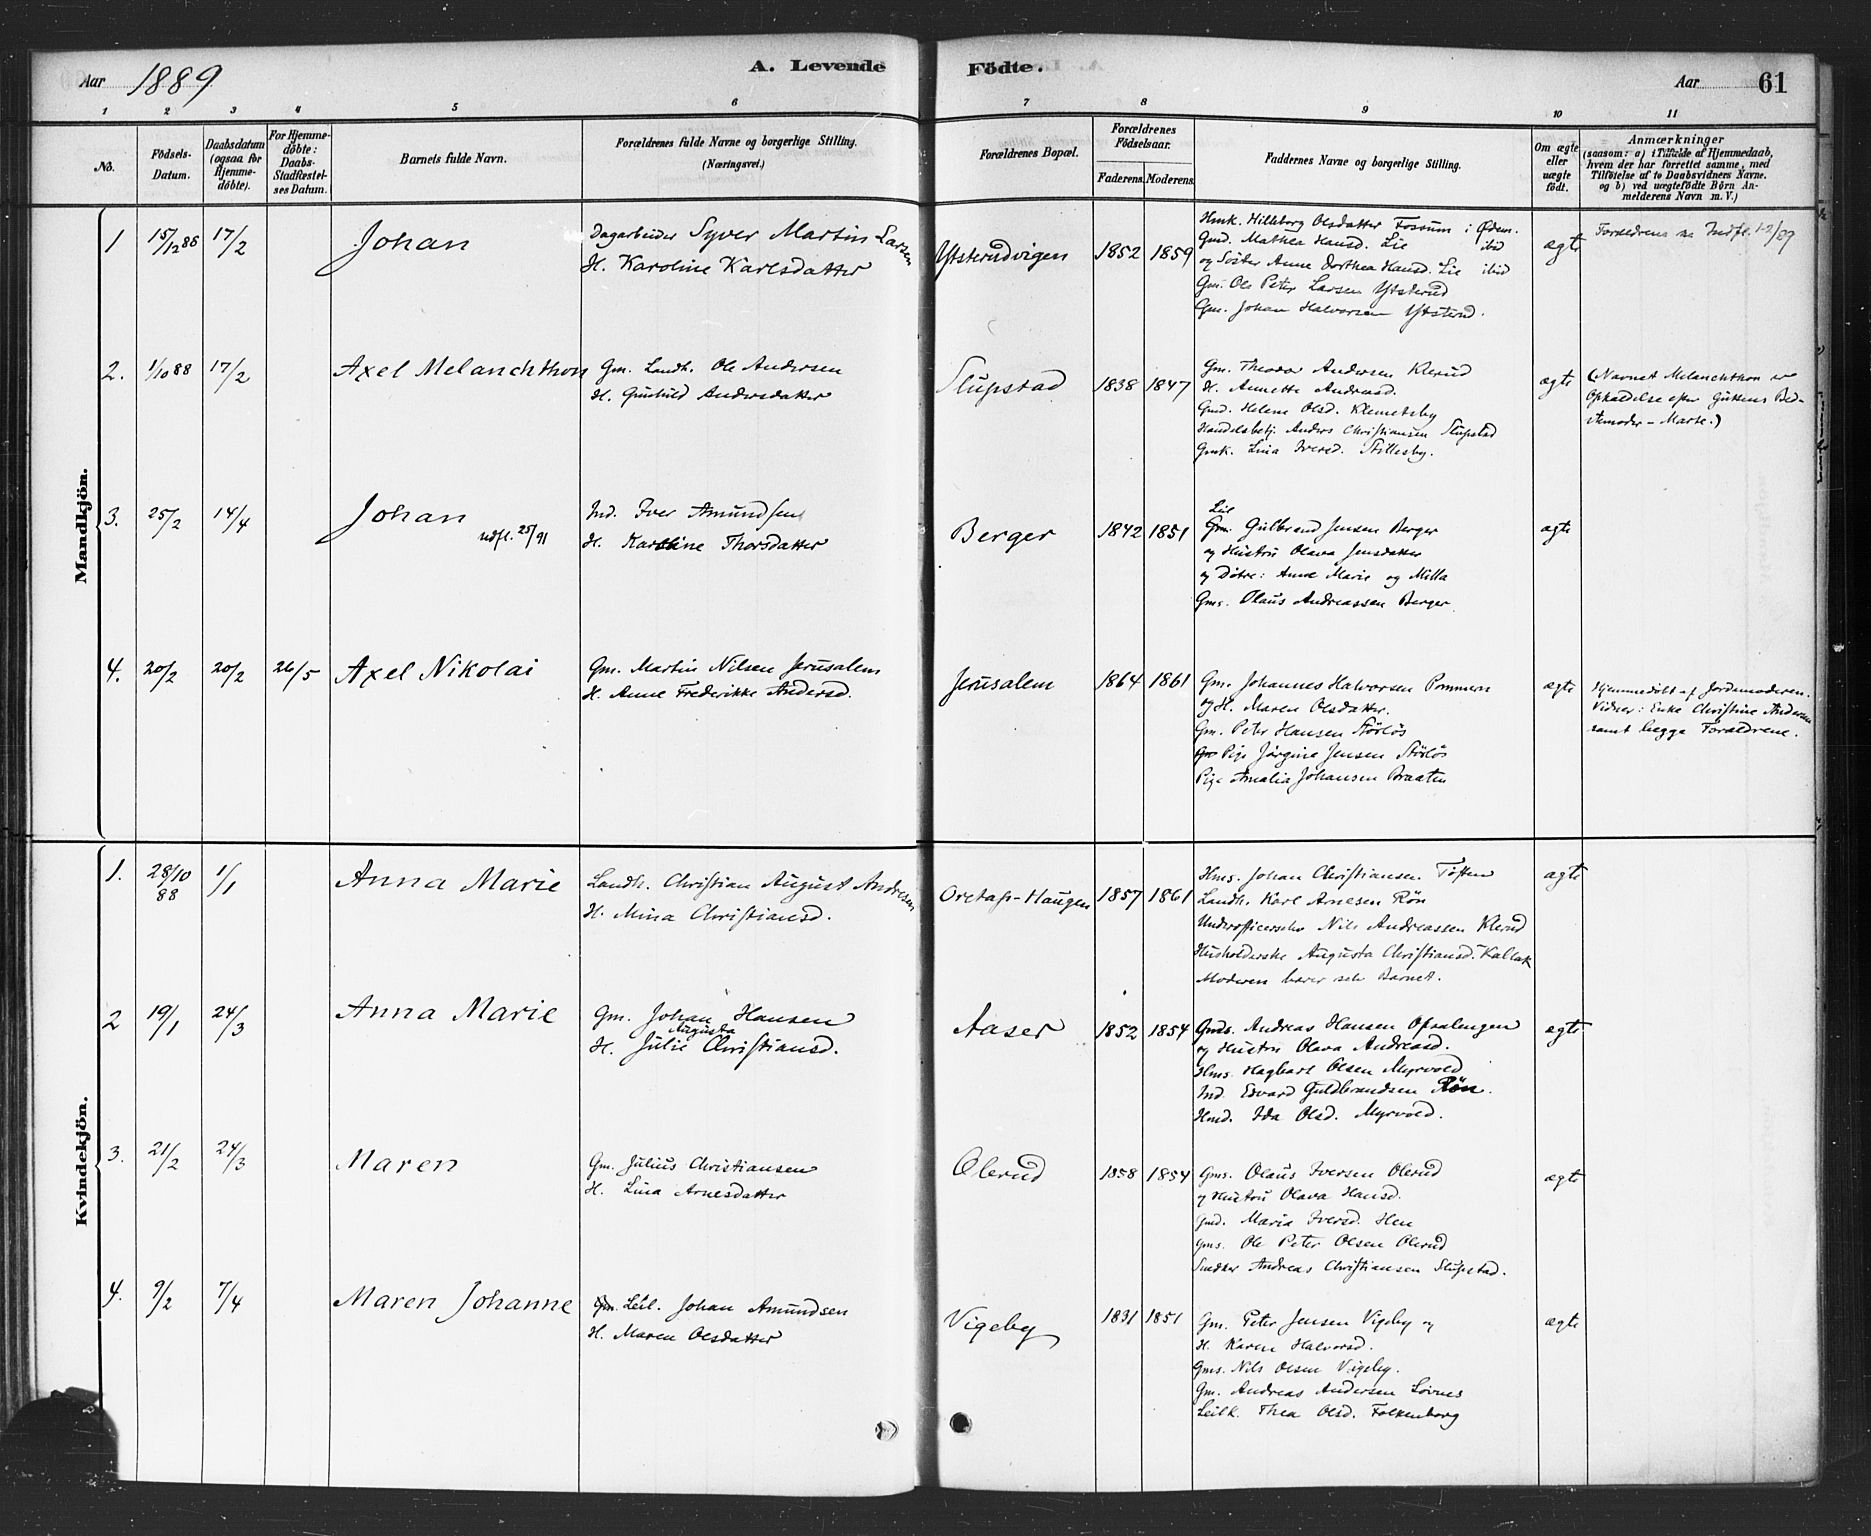 Aar 1889
A. Levende
Födte.
Aar 61
1 2 3 4 5 6 7 8 9 10 11
No.
Födsels-
Datum.
Daabsdatum
(ogsaa for
Hjemme-
döbte).
For Hjemme-
döbte:
Daabs-
Stadfæstel-
ses Datum.
Barnets fulde Navn.
Forældrenes fulde Navne og borgerlige Stilling.
(Næringsvei.)
Forældrenes Bopæl.
Forældrenes
Födselsaar.
Faderens. Moderens.
Faddernes Navne og borgerlige Stilling.
Om ægte
eller
uægte
født.
Anmærkninger
(saasom: a) i Tilfælde af Hjemmedaab,
hvem der har forrettet samme, med
Tilföielse af to Daabsvidners Navne.
og b) ved uægtefödte Börn An-
melderens Navn m. V.)
Mandkjön.
1 15/12 88 17/2
Johan
Dagarbeider Syver Martin Larsen
H. Karoline Karlsdatter
Ytsterudvigen
1852 1859
Hmk. Hilleborg Olsdatter Fossum i Ødem.
Gmd. Mathea Hansd. Lie ibid
og Søster Anne Dorthea Hansd. Lie ibid
Gm. Ole Peter Larsen Ytsterud
Gm. Johan Halvorsen Ytsterud.
ægte
Forældrene Indfl. 1-2/89
2. 1/10 88 17/2
Axel Melanchthon
Gm. Landh. Ole Andersen
H. Gunhild Andersdatter
Slupstad
1838 1847
Gm. Theodor Andersen Klerud
H. Annette Andreasd.
Gmd. Helene Olsd. Klemetsby
Handelsbetj. Anders Christiansen Slupstad
Gmk. Lina Iversd. Stillesby.
ægte
(Navnet Melanchthon er
Opkaldelse efter Guttens Bed-
stemoder - Marte.)
3. 25/2 14/4
Johan
udfl. 25/91
Ind. Iver Amundsen
H. Karoline Thorsdatter
Berger
1842 1851
Leil
Gm. Gulbrand Jensen Berger
og Hustru Olava Jensdatter
og Døtre: Anne Marie og Milla
Gms. Olaus Andreassen Berger
ægte
4. 20/2 20/2 26/5
Axel Nikolai
Gm. Martin Nilsen Jerusalem
H. Anne Frederikke Andersd.
Jerusalem
1864 1861
Gm. Johannes Halvorsen Pommern
og H. Maren Olsdatter.
Gm. Peter Hansen Störlös
Pige Jörgine Jensen Störlös
Pige Amalia Johansen Braaten
ægte
Hjemmedøbt af Jordemoderen.
Vidner: Enke Christine Andersen
samt begge Forældrene.
Kvindekjön.
1. 28/10 88 1/1
Anna Marie
Landh. Christian August Andresen
H. Mina Christiansd.
Oretap-Haugen
1857 1861
Hms. Johan Christiansen Toften
Landh. Karl Arnesen Rön
Underofficerselev Nils Andreassen Klerud
Husholderske Augusta Christiansd. Kallak
Moderen barer selv Barnet.
ægte
2 19/1 24/3
Anna Marie
Gm. Johan Hansen
Augusta
H. Julie Christiansd.
Aaser
1852 1854
Gmds. Andreas Hansen Opsalengen
og Hustru Olava Andreasd.
Hms. Hagbart Olsen Myrvold
Ind. Edvard Guldbrandsen Rön.
Hmd. Ida Olsd. Myrvold.
ægte
3. 21/2 24/3
Maren
Gm. Julius Christiansen
H. Lina Arnesdatter
Olerud
1858 1854
Gms. Olaus Iversen Olerud
og Hustru Olava Hansd.
Gmd. Maria Iversd. Hen
Gms. Ole Peter Olsen Olerud
Snedker Andreas Christiansen Slupstad.
ægte
4. 9/2 7/4
Maren Johanne
Gm. Leil. Johan Amundsen
H. Maren Olsdatter
Vigeby
1831 1851
Gm. Peter Jensen Vigeby og
H. Karen Halvorsd.
Gms. Nils Olsen Vigeby.
Gm. Andreas Andersen Lövnes
Leilk. Thea Olsd. Falkenborg
ægte